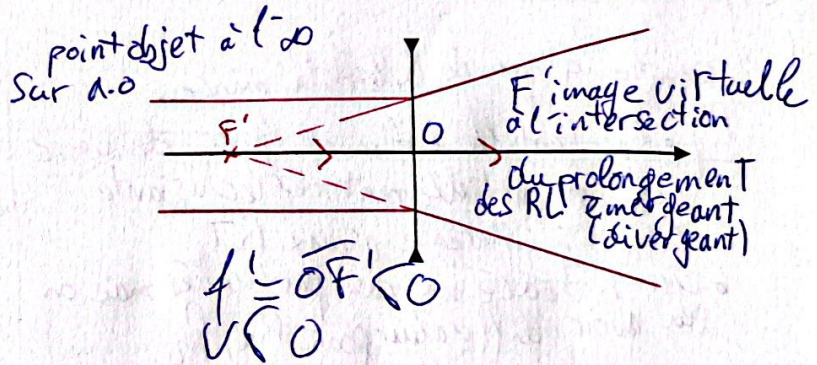 point objet à l'-∞
Sur a.o
F'
O
F' image virtuelle
à l'intersection
du prolongement
des RL émergeant
(divergeant)
f' = OF' < 0
V < 0